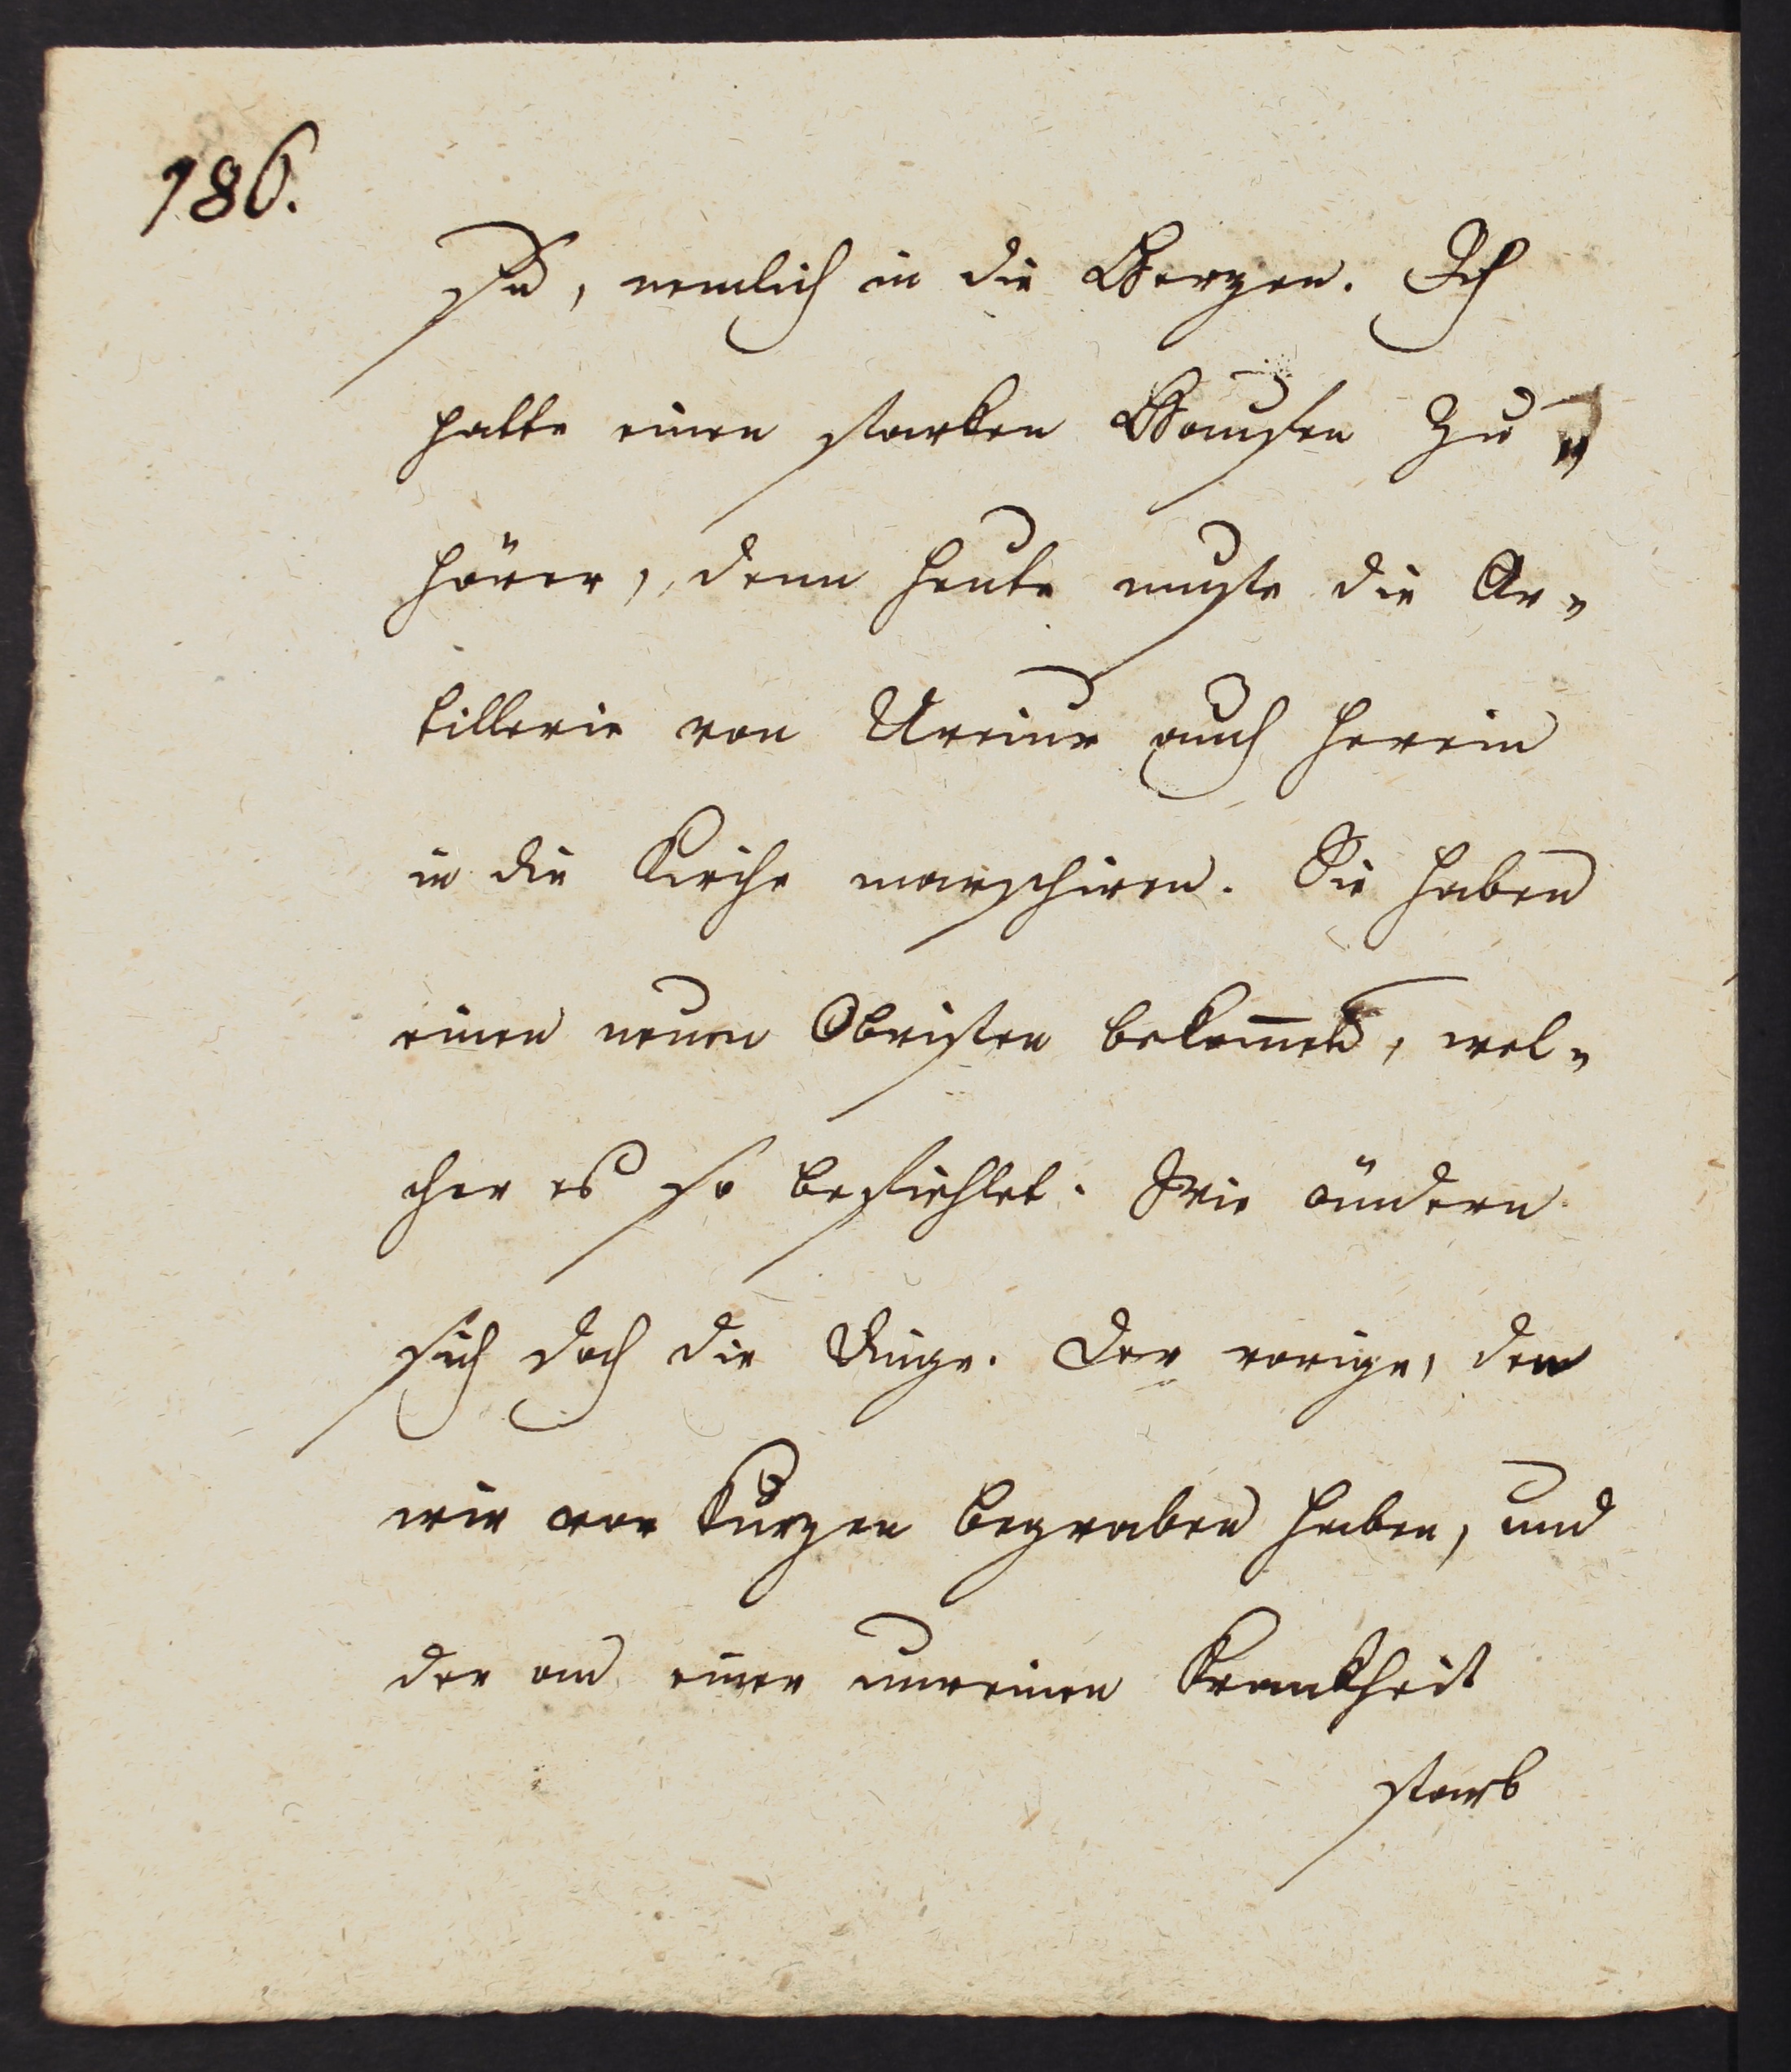 186.
ße, nemlich in die Herzen. Ich
hatte einen starken Haufen Zu„
hörer, denn heute muste die Ar„
tillerie von Ureine auch herein
in die Kirche marschiren. Sie haben
einen neuen Obristen bekom̅en, wel„
cher es so befiehlet. Wie ändern
sich doch die Dinge. Der vorige, den
wir vor kurzen begraben haben, und
der an einer unreinen Krankheit
starb